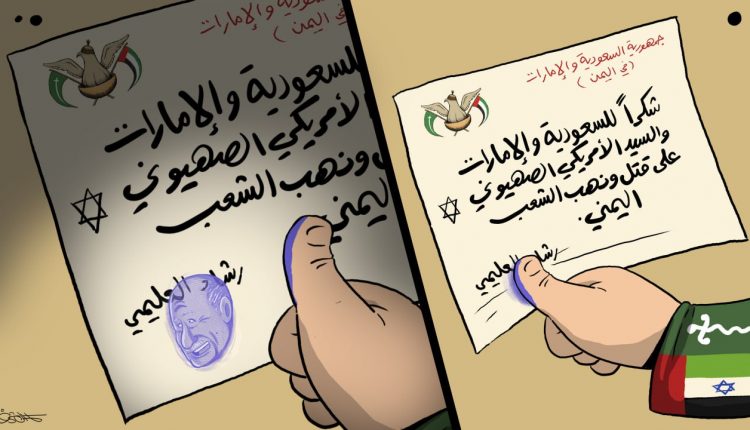 السعودية والإمارات
في اليمن )
للسعودية والإمارات
الأمريكي الصهيوني
ونهب الشعب
اليمني
رشاد العليمي
جمهورية السعودية والإمارات
(في اليمن )
شكراً للسعودية والإمارات
والسيد الأمريكي الصهيوني
على قتل ونهب الشعب
اليمني.
رشاد العليمي